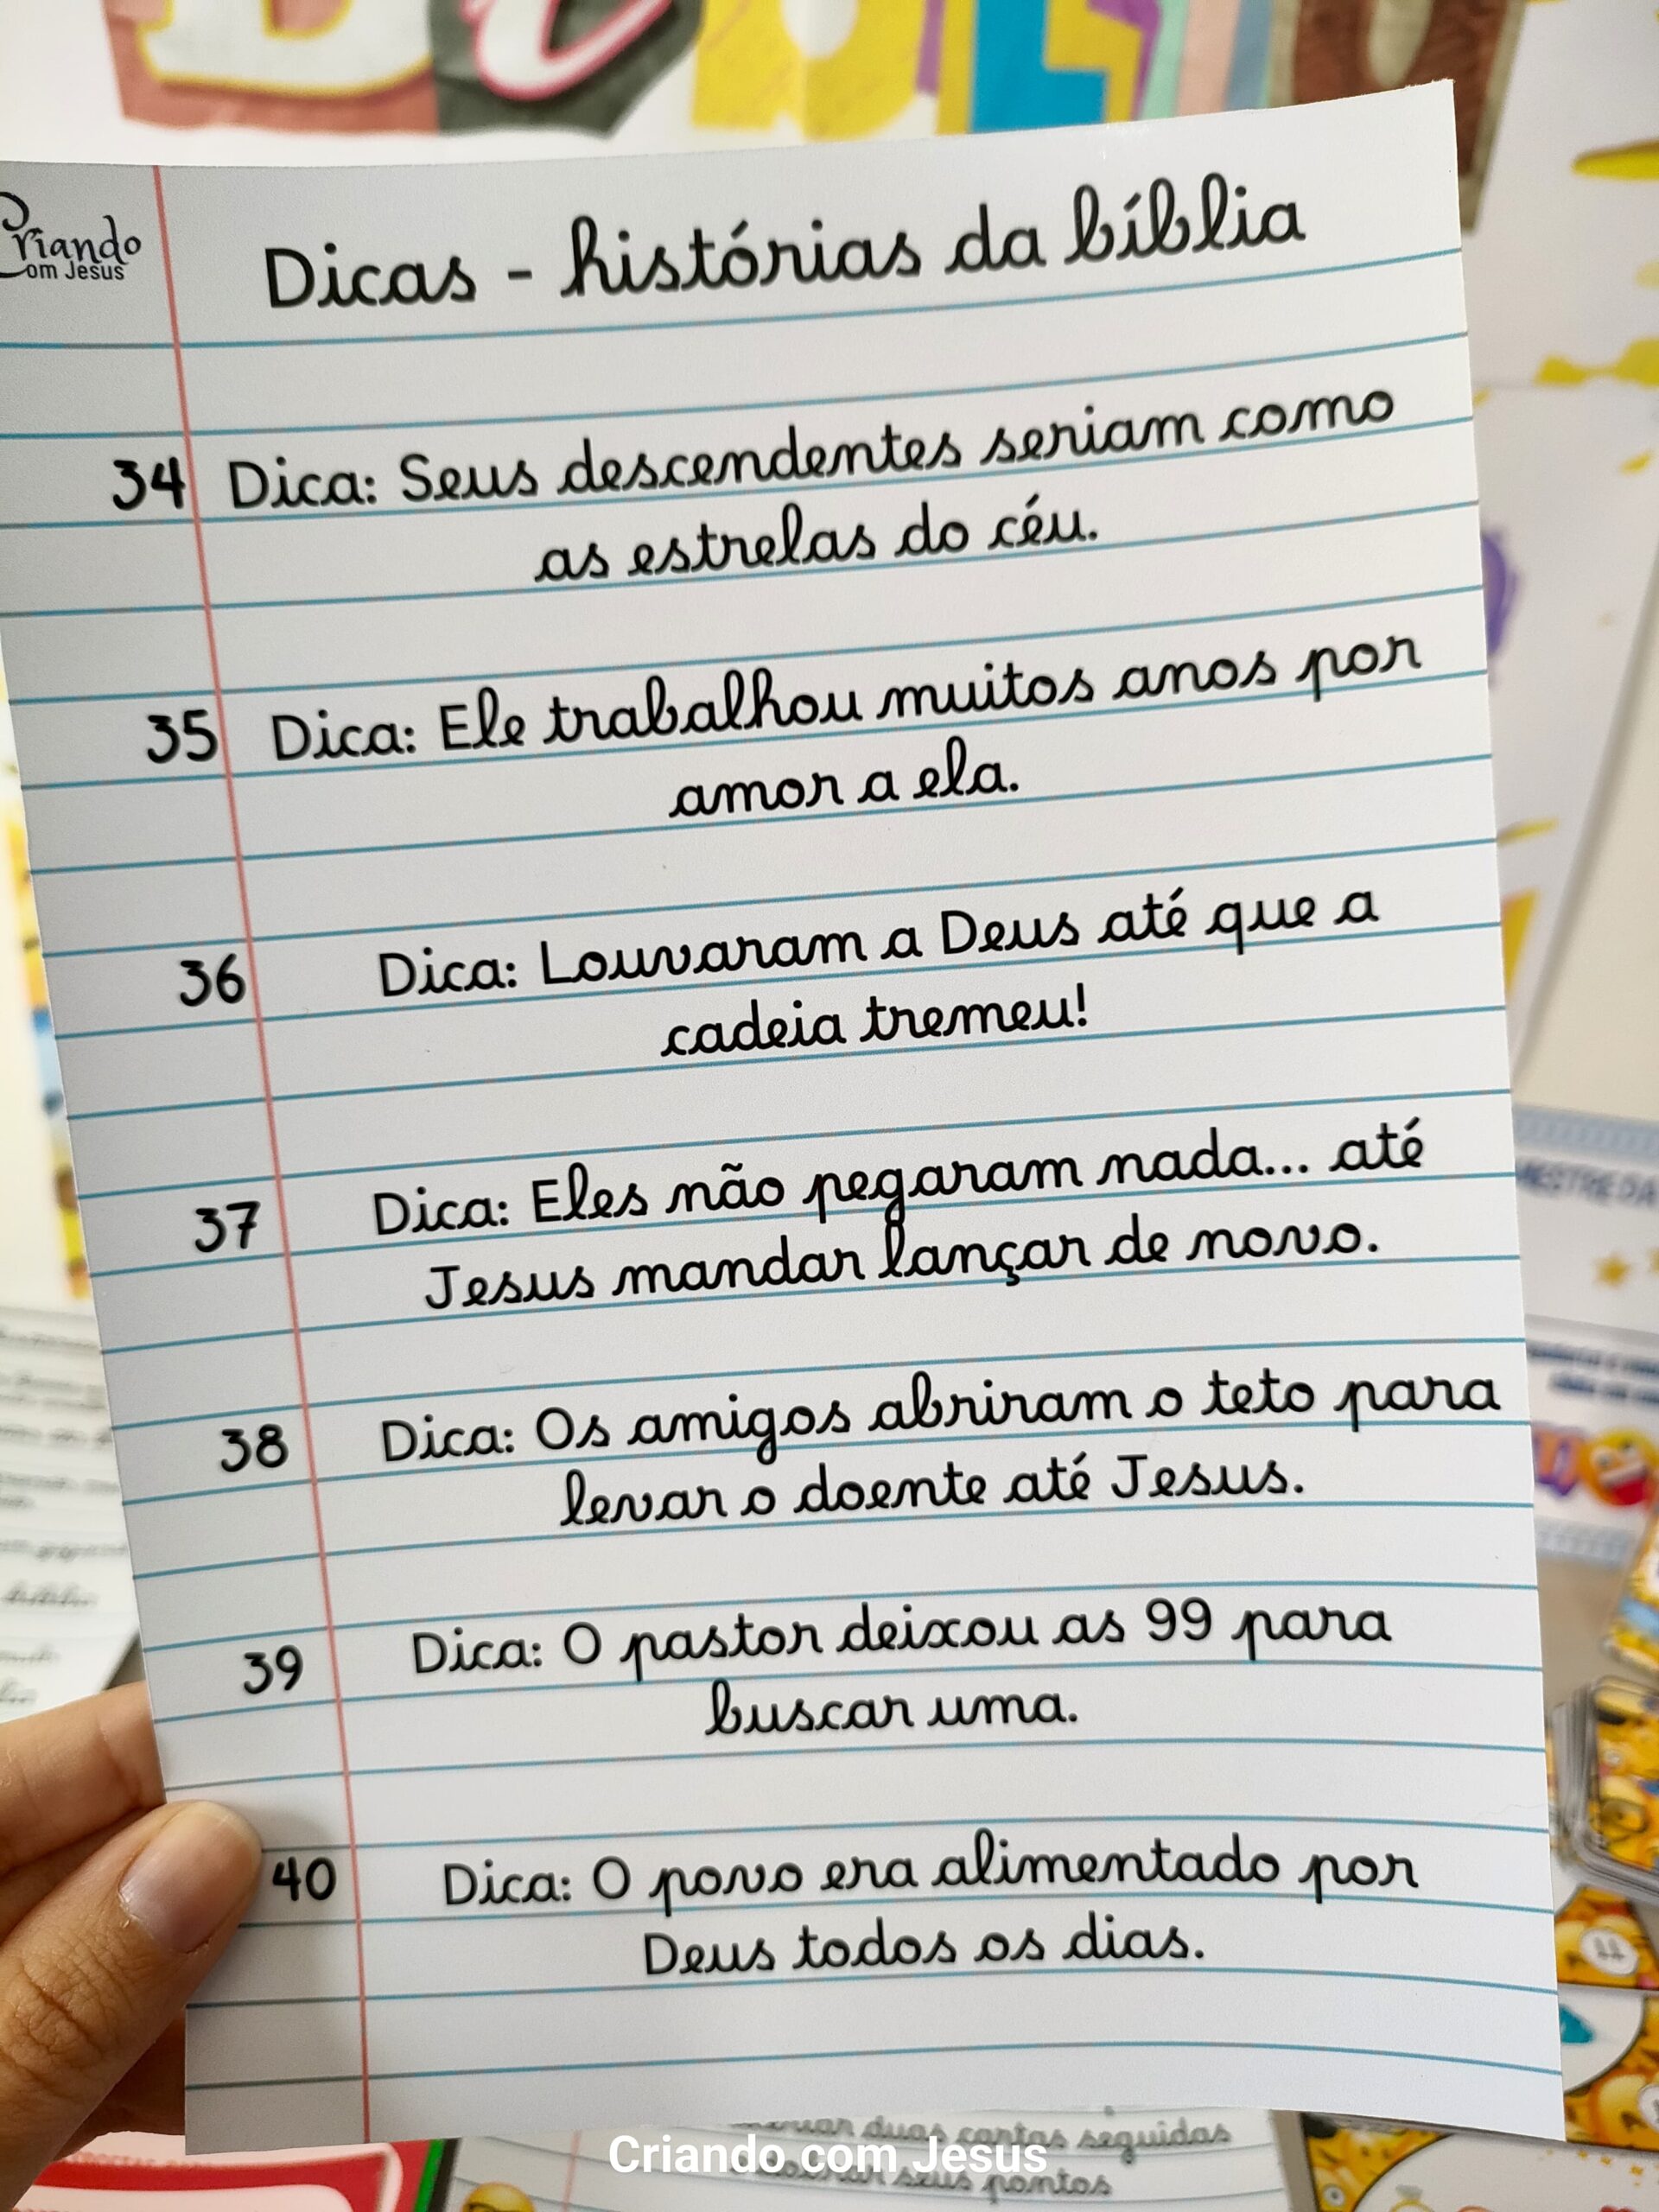 Criando
com Jesus
Dicas - histórias da bíblia
34 Dica: Seus descendentes seriam como
as estrelas do céu.
35 Dica: Ele trabalhou muitos anos por
amor a ela.
36 Dica: Louvaram a Deus até que a
cadeia tremeu!
37 Dica: Eles não pegaram nada... até
Jesus mandar lançar de novo.
38 Dica: Os amigos abriram o teto para
levar o doente até Jesus.
39 Dica: O pastor deixou as 99 para
buscar uma.
40 Dica: O povo era alimentado por
Deus todos os dias.
duas cartas seguidas
seus pontos
Criando com Jesus